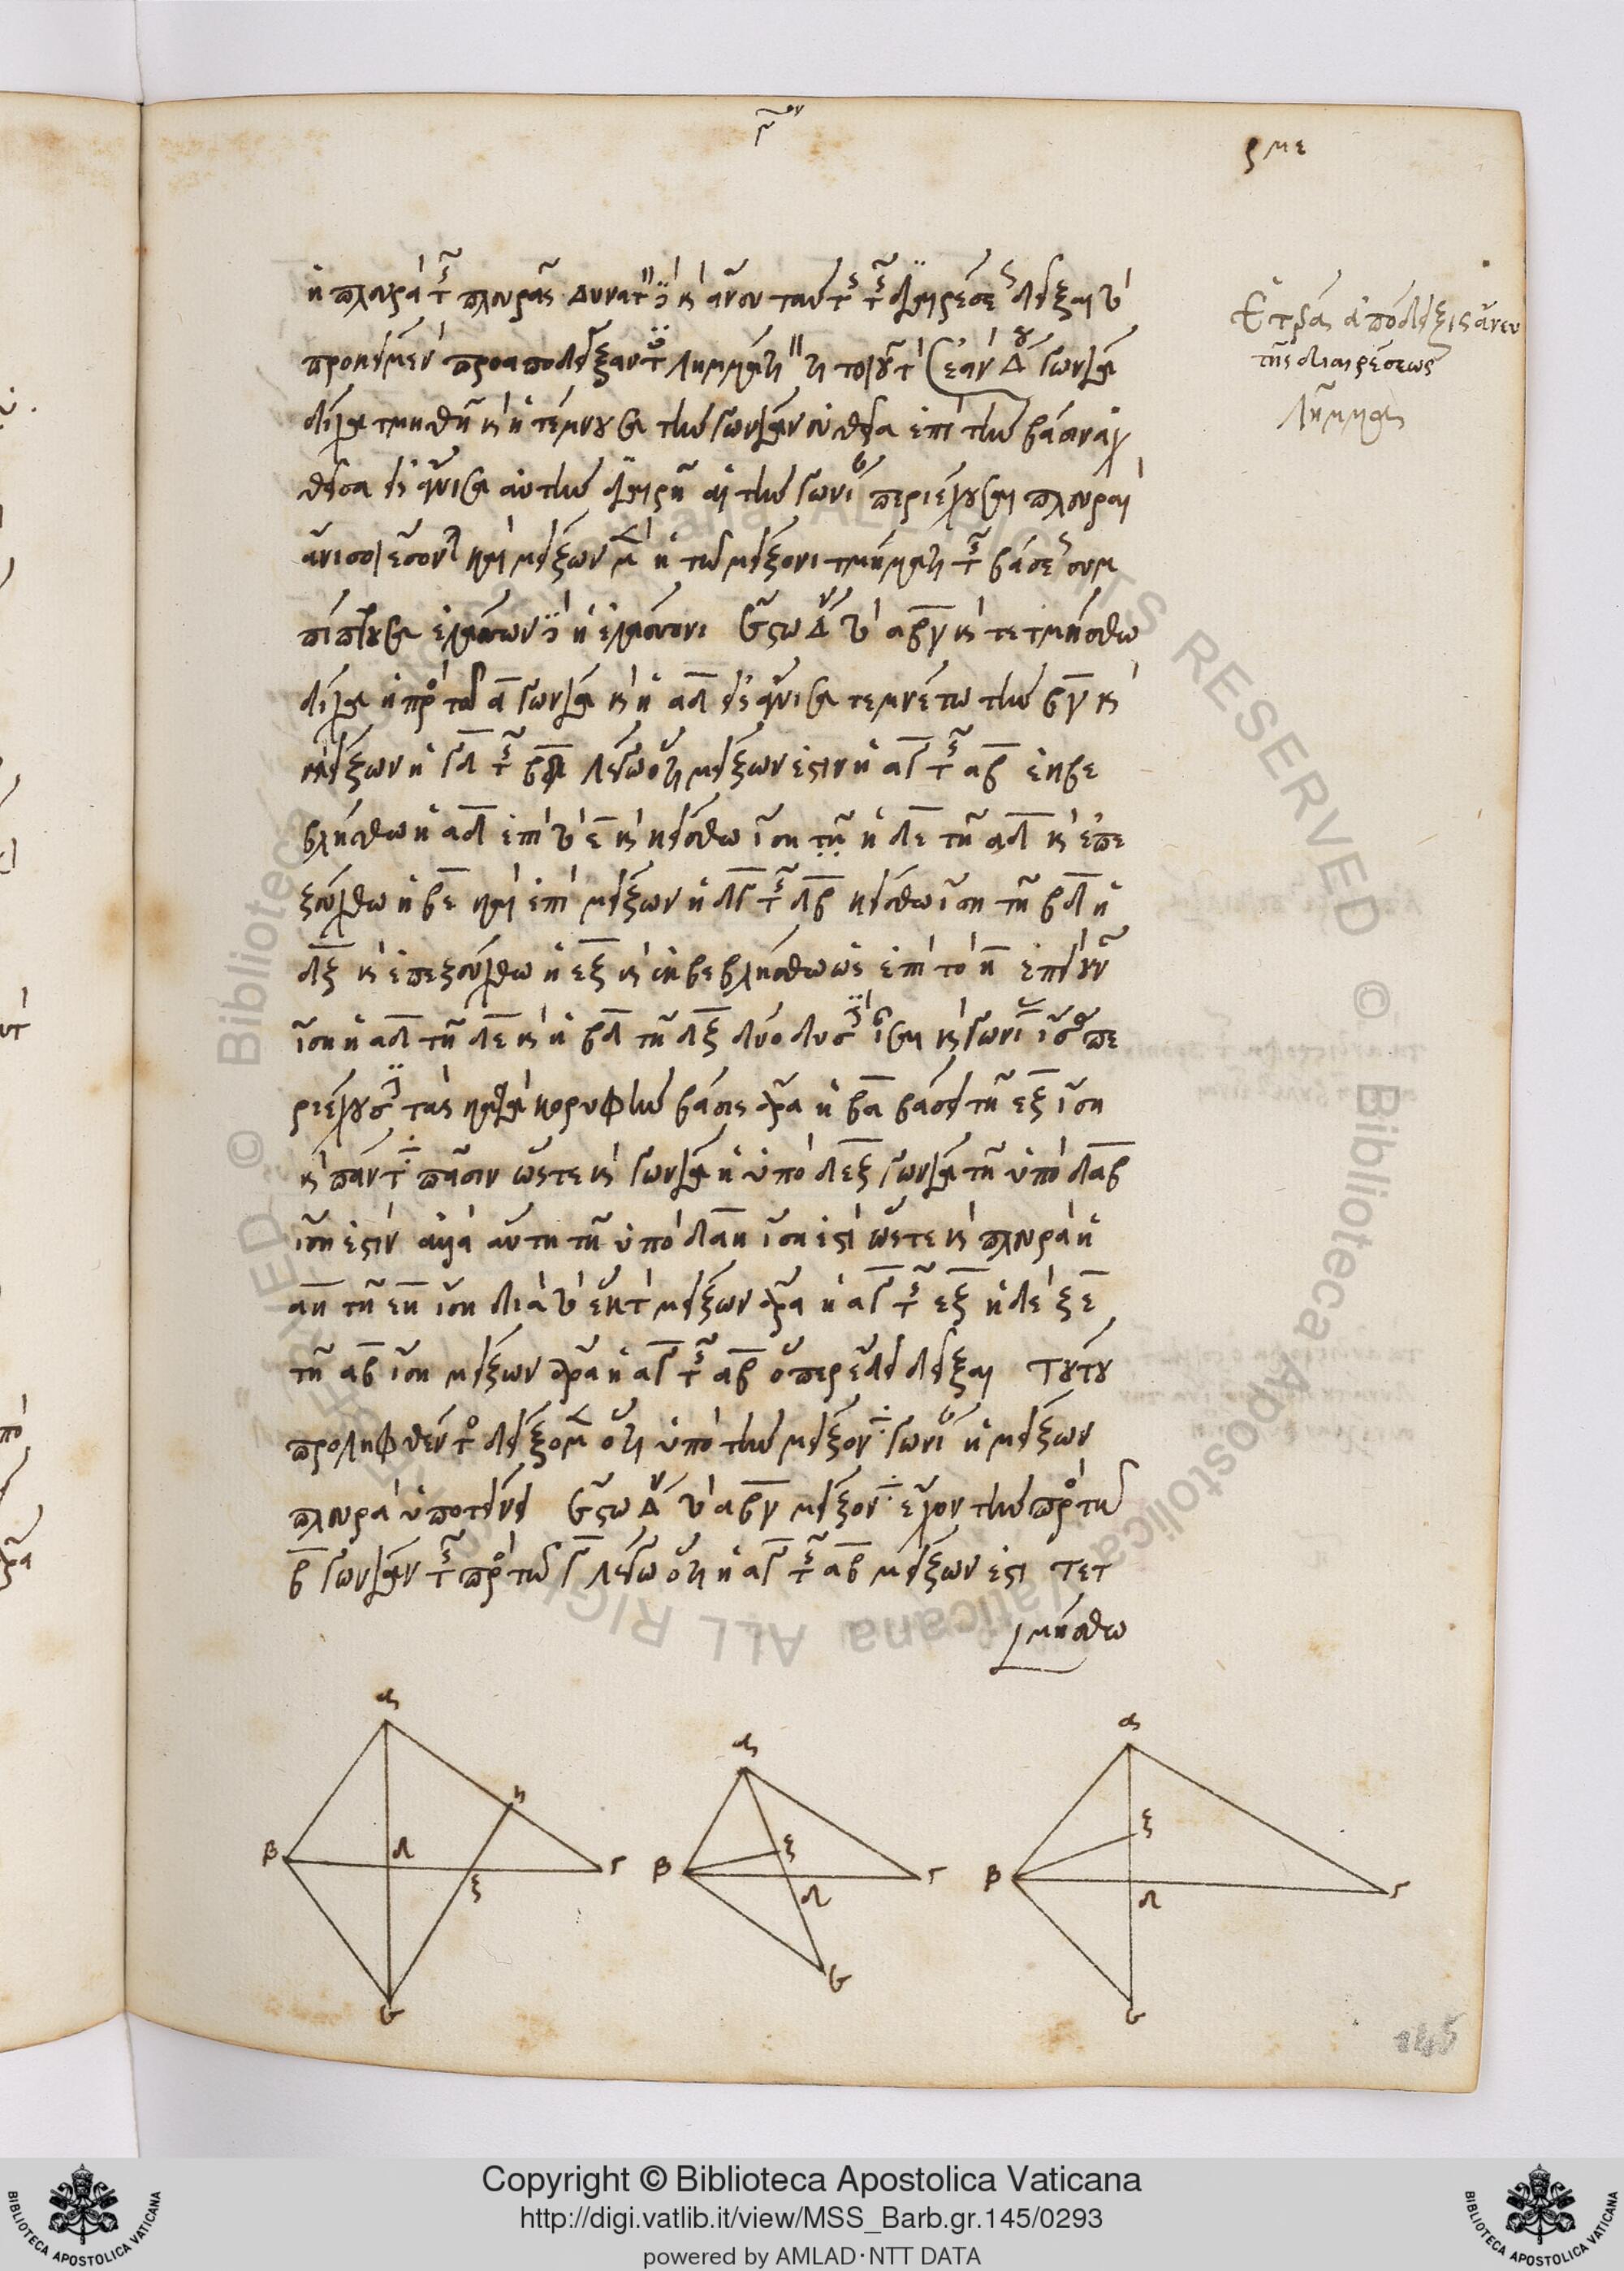 γον
ϛμε
ἡ πλευρὰ τῆς πλευρᾶς δυνατὸν ἐστι καὶ ἄνευ ταύτης τῆς διαιρέσεως δεῖξαι τὸ
προκείμενον προαποδείξαντας λημμάτιον τι τοιοῦτον ἐὰν τριγώνου γωνία
δίχα τμηθῇ καὶ ἡ τέμνουσα τὴν γωνίαν εὐθεῖα ἐπὶ τὴν βάσιν ἀχ
θεῖσα εἰς ἄνισα αὐτὴν διαιρῇ αἱ τὴν γωνίαν περιέχουσαι πλευραὶ
ἄνισοι ἔσονται καὶ μείζων μὲν ἡ τῷ μείζονι τμήματι τῆς βάσεως συμ
πίπτουσα ἐλάσσων δὲ ἡ ἐλάσσονι ἔστω τρίγωνον τὸ αβγ καὶ τετμήσθω
δίχα ἡ πρὸς τῷ α γωνία καὶ ἡ αδ εἰς ἄνισα τεμνέτω τὴν βγ καὶ
μείζων ἡ γδ τῆς βδ λέγω ὅτι μείζων ἐστιν ἡ αγ τῆς αβ ἐκβε
βλήσθω ἡ αδ ἐπὶ τὸ ε καὶ κείσθω ἴση τῇ ἡ δε τῇ αδ καὶ ἐπε
ζεύχθω ἡ βε καὶ ἐπεὶ μείζων ἡ δγ τῆς δβ κείσθω ἴση τῇ βδ ἡ
δξ καὶ ἐπεζεύχθω ἡ εξ καὶ ἐκβεβλήσθω ὡς ἐπὶ τὸ η ἐπεὶ οὖν
ἴση ἡ αδ τῇ δε καὶ ἡ βδ τῇ δξ δύο δυσὶν ἴσαι καὶ γωνίας ἴσας πε
ριέχουσι τὰς κατὰ κορυφὴν βάσις ἄρα ἡ βα βάσει τῇ εξ ἴση
καὶ πάντα πᾶσιν ὥστε καὶ γωνία ἡ ὑπὸ δεξ γωνία τῇ ὑπὸ δαβ
ἴση ἐστὶν ἀλλὰ αὕτη τῇ ὑπὸ δαη ἴση ἐστὶ ὥστε καὶ πλευρὰ ἡ
αη τῇ εη ἴση διὰ τὸ ἕκτον μείζων ἄρα ἡ αγ τῆς εξ ἡ δὲ ξε
τῇ αβ ἴση μείζων ἄρα ἡ αγ τῆς αβ ὅπερ ἔδει δεῖξαι τούτου
προληφθέντος δείξομεν ὅτι ὑπὸ τὴν μείζονα γωνίαν ἡ μείζων
πλευρὰ ὑποτείνει ἔστω τρίγωνον τὸ αβγ μείζονα ἔχον τὴν πρὸς τῷ
β γωνίαν τῆς πρὸς τῷ γ λέγω ὅτι ἡ αγ τῆς αβ μείζων ἐστὶ τετ
μήσθω
Ἑτέρα ἀπόδειξις ἄνευ
τῆς διαιρέσεως
λῆμμα
α
η
β
δ
γ
ξ
ε
α
ξ
β
γ
δ
ε
α
ξ
β
γ
δ
ε
145
© Biblioteca Apostolica Vaticana ALL RIGHTS RESERVED © Biblioteca Apostolica Vaticana ALL RIGHTS RESERVED
Copyright © Biblioteca Apostolica Vaticana
http://digi.vatlib.it/view/MSS_Barb.gr.145/0293
powered by AMLAD·NTT DATA
BIBLIOTECA APOSTOLICA VATICANA
BIBLIOTECA APOSTOLICA VATICANA